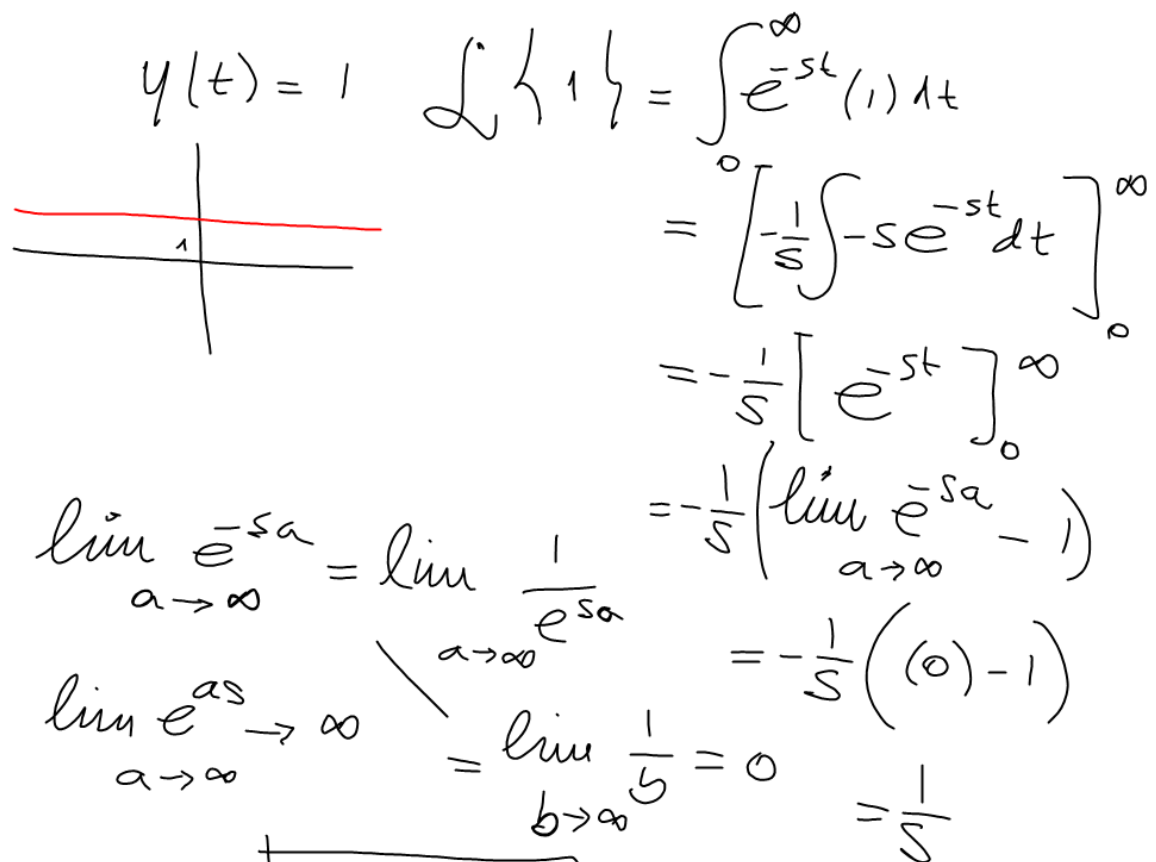 y(t) = 1   ℒ{1} = ∫₀^∞ e^{-st} (1) dt
1
= [-1/s ∫ -s e^{-st} dt]₀^∞
= -1/s [e^{-st}]₀^∞
= -1/s (lim_{a→∞} e^{-sa} - 1)
= -1/s ((0) - 1)
= 1/s
lim_{a→∞} e^{-sa} = lim_{a→∞} 1/e^{sa}
lim_{a→∞} e^{as} → ∞
= lim_{b→∞} 1/b = 0